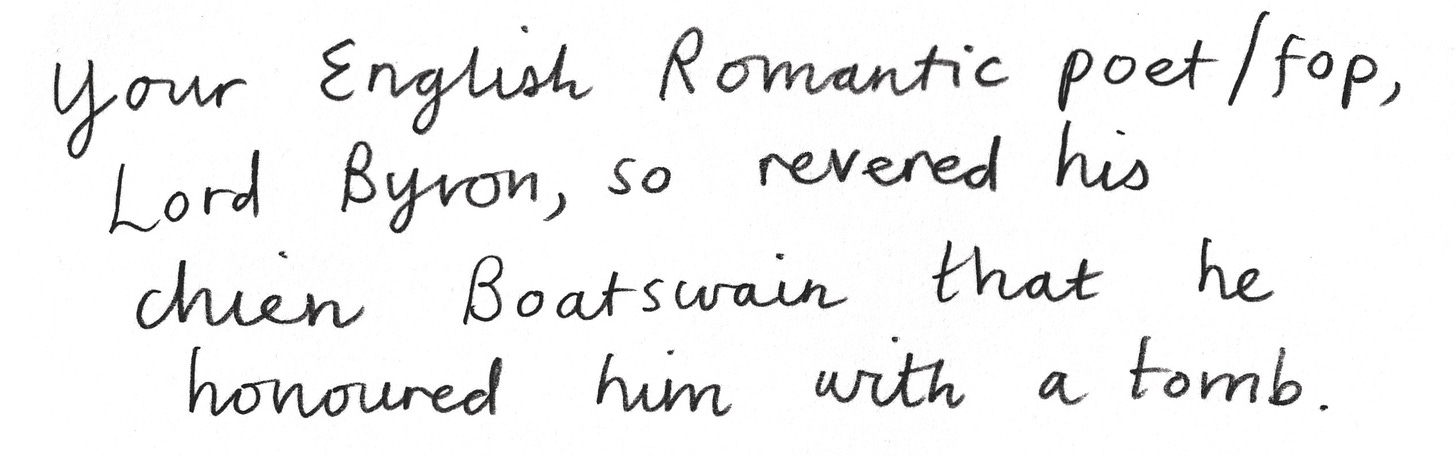 Your English Romantic poet/fop,
Lord Byron, so revered his
chien Boatswain that he
honoured him with a tomb.